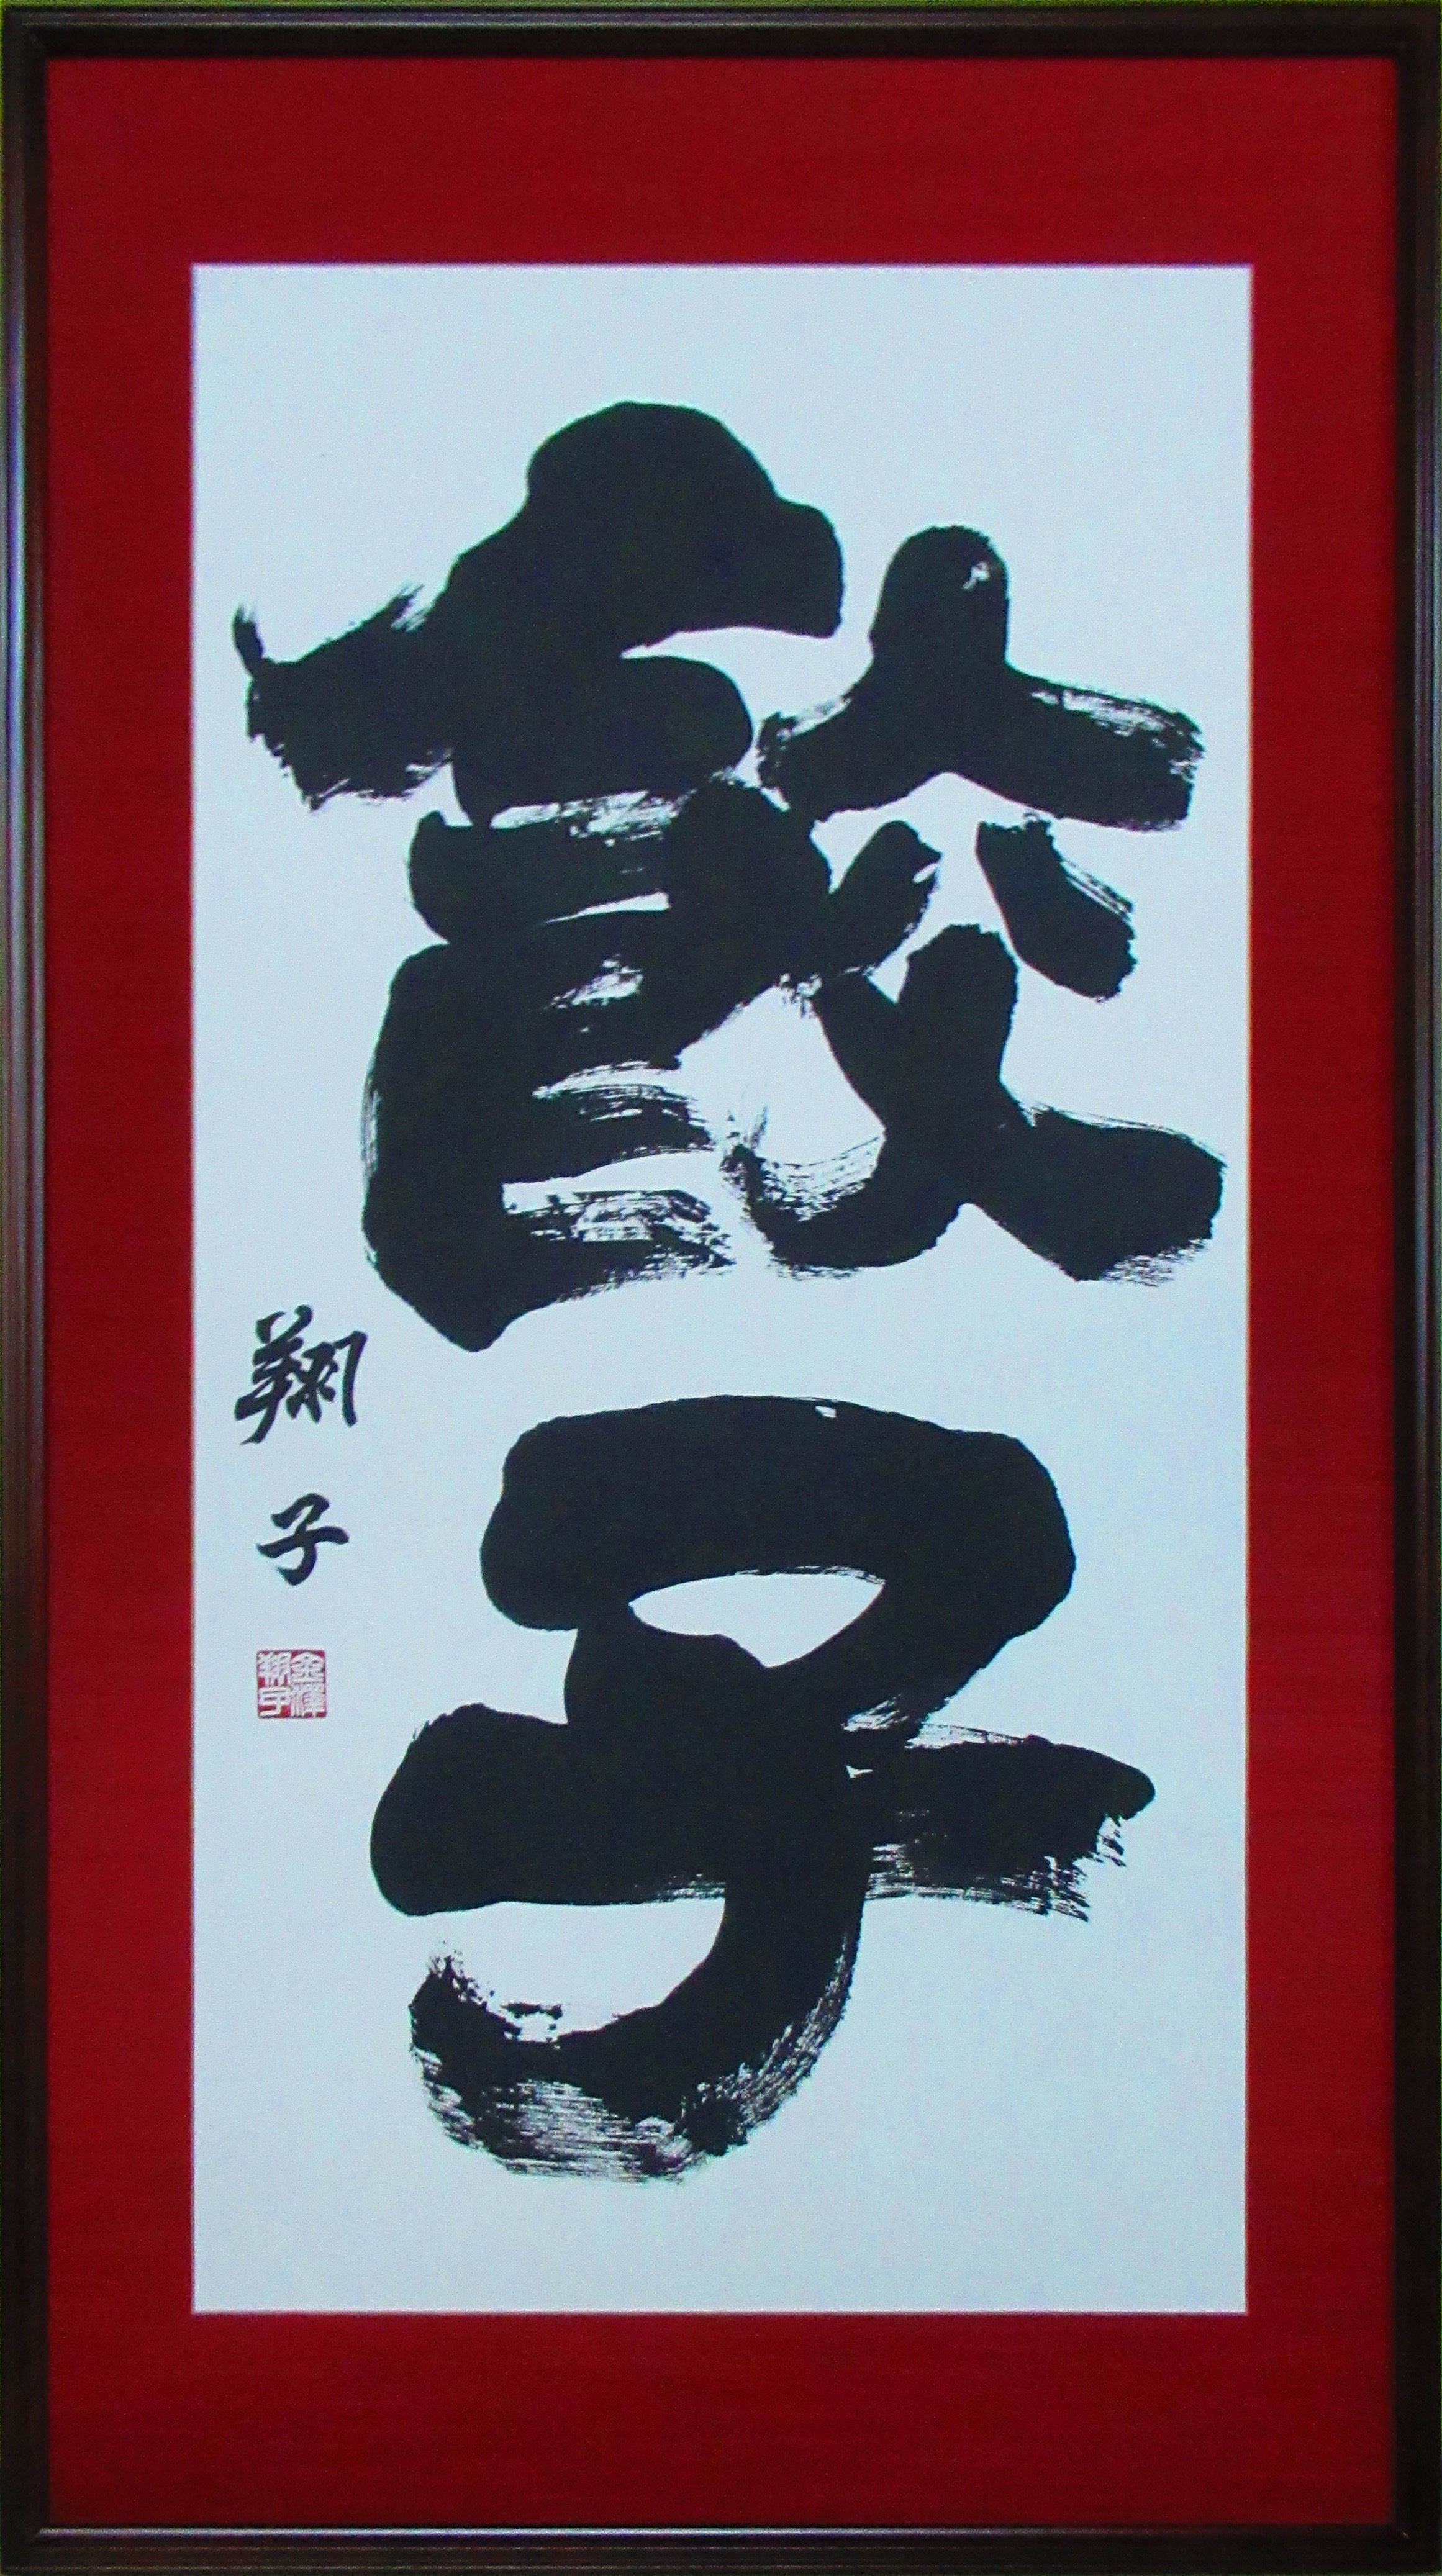 餃子
翔子
金澤
翔子